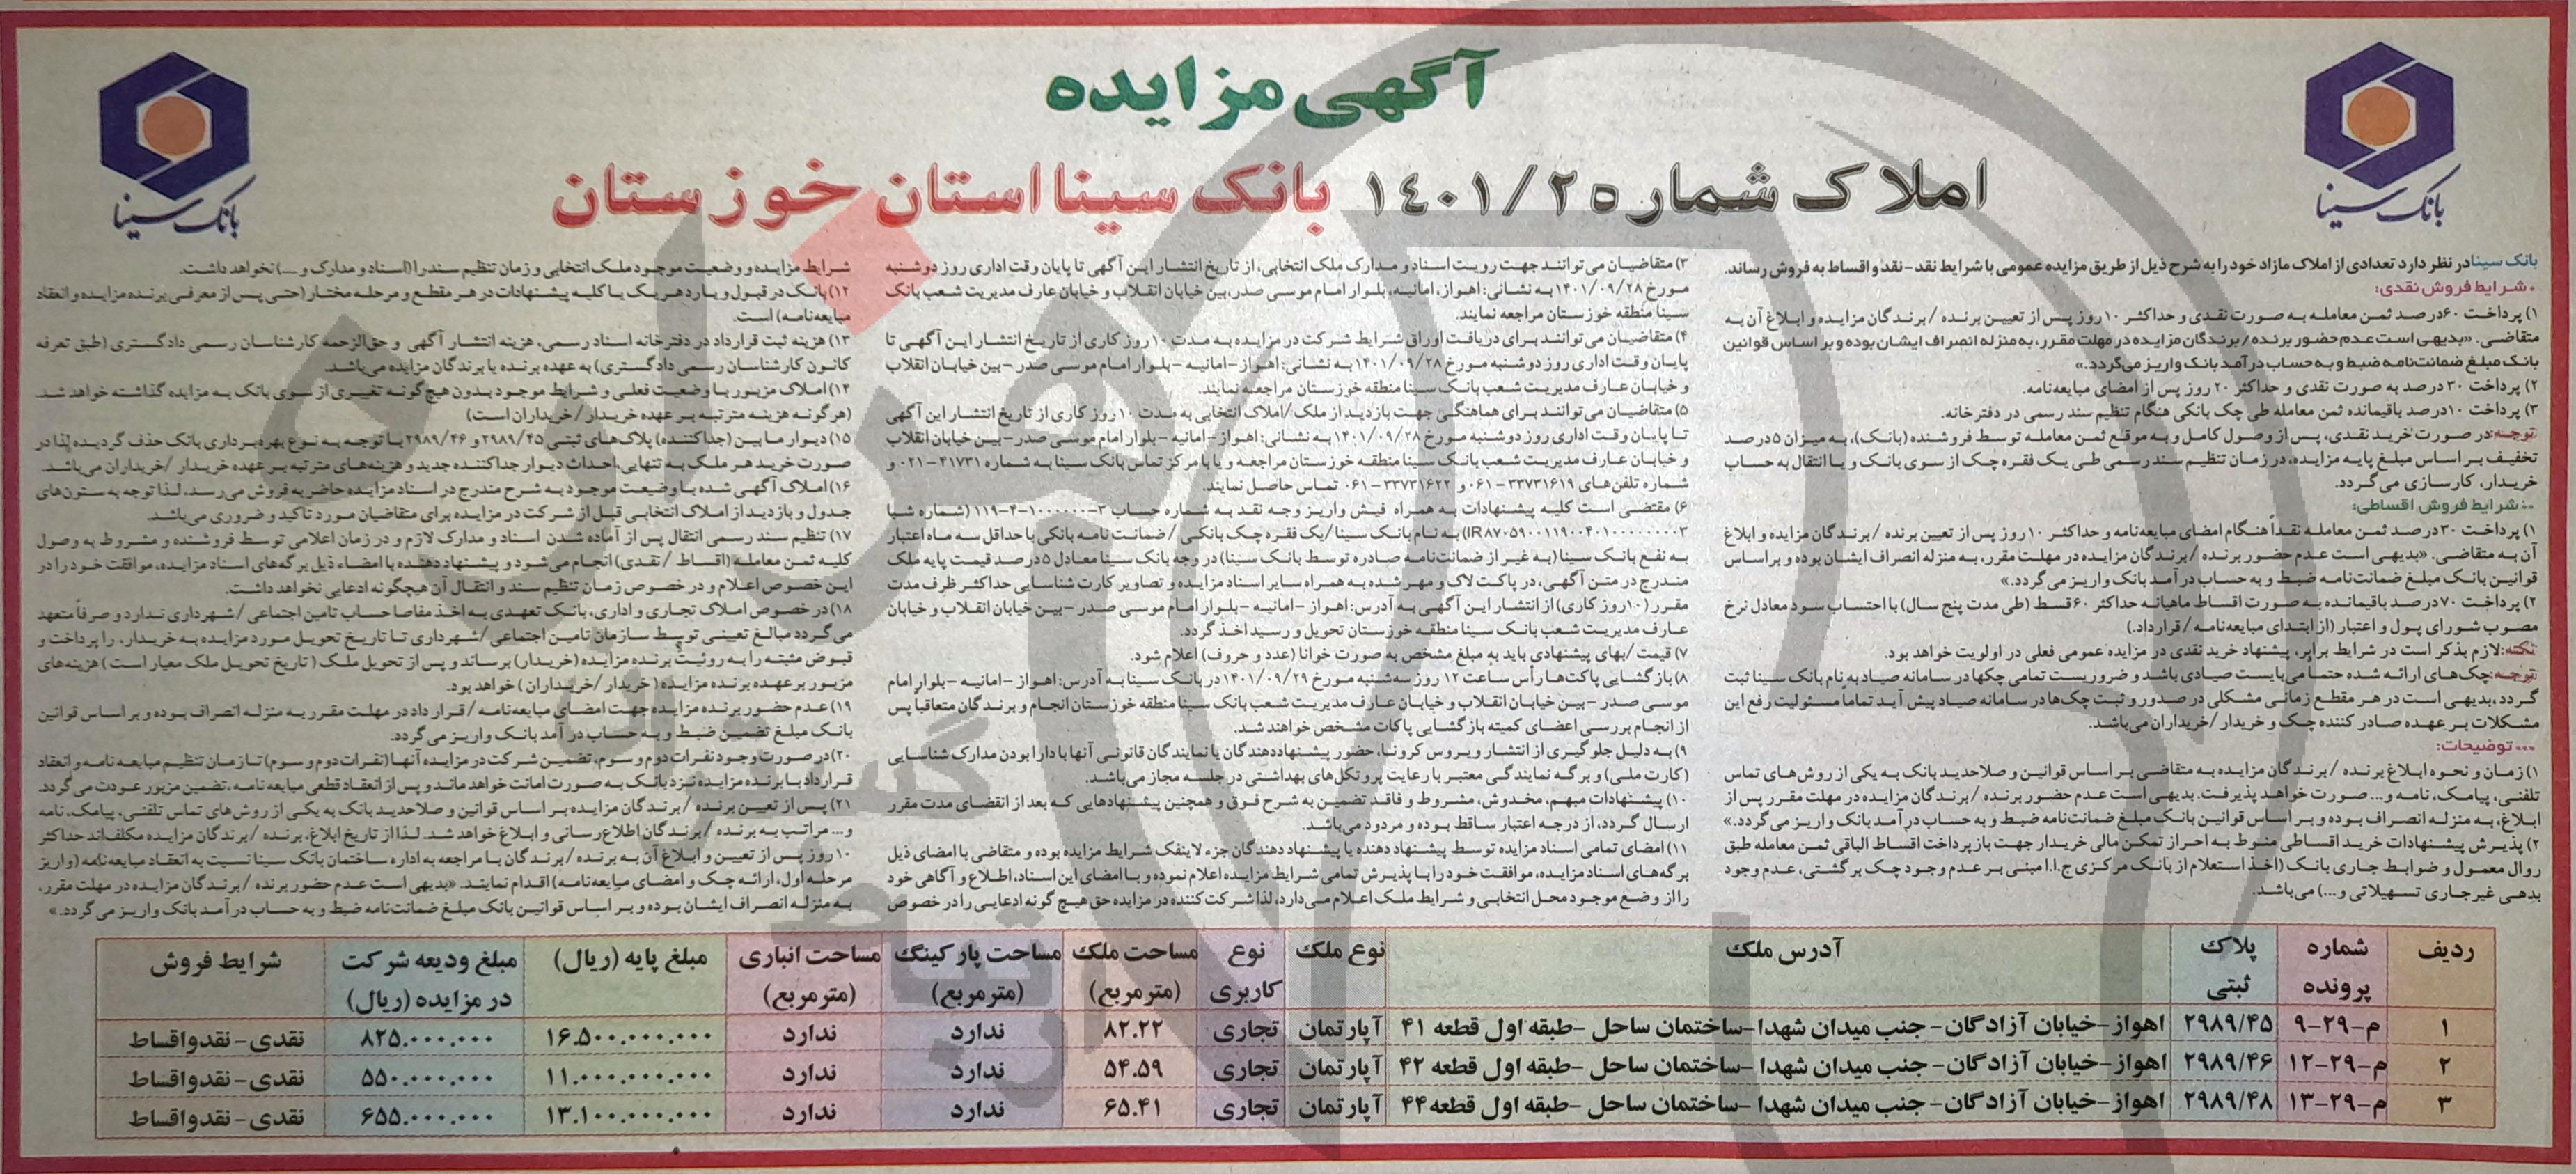 آگهی مزایده
املاک شماره ۱۴۰۱/۲ بانک سینا استان خوزستان
بانک سینا
بانک سینا
بانک سینا در نظر دارد تعدادی از املاک مازاد خود را به شرح ذیل از طریق مزایده عمومی با شرایط نقد - نقد و اقساط به فروش رساند.
* شرایط فروش نقدی:
۱) پرداخت ۶۰درصد ثمن معامله به صورت نقدی و حداکثر ۱۰ روز پس از تعیین برنده / برندگان مزایده و ابلاغ آن به
متقاضی. «بدیهی است عدم حضور برنده / برندگان مزایده در مهلت مقرر، به منزله انصراف ایشان بوده و بر اساس قوانین
بانک مبلغ ضمانت‌نامه ضبط و به حساب درآمد بانک واریز می‌گردد.»
۲) پرداخت ۳۰ درصد به صورت نقدی و حداکثر ۲۰ روز پس از امضای مبایعه‌نامه.
۳) پرداخت ۱۰درصد باقیمانده ثمن معامله طی چک بانکی هنگام تنظیم سند رسمی در دفترخانه.
توجه: در صورت خرید نقدی، پس از وصول کامل و به موقع ثمن معامله توسط فروشنده (بانک)، به میزان ۵درصد
تخفیف بر اساس مبلغ پایه مزایده، در زمان تنظیم سند رسمی طی یک فقره چک از سوی بانک و یا انتقال به حساب
خریدار، کارسازی می‌گردد.
** شرایط فروش اقساطی:
۱) پرداخت ۳۰درصد ثمن معامله نقداً هنگام امضای مبایعه‌نامه و حداکثر ۱۰ روز پس از تعیین برنده / برندگان مزایده و ابلاغ
آن به متقاضی. «بدیهی است عدم حضور برنده / برندگان مزایده در مهلت مقرر، به منزله انصراف ایشان بوده و براساس
قوانین بانک مبلغ ضمانت‌نامه ضبط و به حساب درآمد بانک واریز می‌گردد.»
۲) پرداخت ۷۰درصد باقیمانده به صورت اقساط ماهیانه حداکثر ۶۰ قسط (طی مدت پنج سال) با احتساب سود معادل نرخ
مصوب شورای پول و اعتبار (از ابتدای مبایعه‌نامه / قرارداد.)
نکته: لازم بذکر است در شرایط برابر، پیشنهاد خرید نقدی در مزایده عمومی فعلی در اولویت خواهد بود.
توجه: چک‌های ارائه شده حتما می‌بایست صیادی باشد و ضروریست تمامی چکها در سامانه صیاد به نام بانک سینا ثبت
گردد، بدیهی است در هر مقطع زمانی مشکلی در صدور و ثبت چک‌ها در سامانه صیاد پیش آید تماماً مسئولیت رفع این
مشکلات بر عهده صادر کننده چک و خریدار /خریداران می‌باشد.
*** توضیحات:
۱) زمان و نحوه ابلاغ برنده / برندگان مزایده به متقاضی بر اساس قوانین و صلاحدید بانک به یکی از روش‌های تماس
تلفنی، پیامک، نامه و... صورت خواهد پذیرفت. بدیهی است عدم حضور برنده / برندگان مزایده در مهلت مقرر پس از
ابلاغ، به منزله انصراف بوده و بر اساس قوانین بانک مبلغ ضمانت‌نامه ضبط و به حساب درآمد بانک واریز می‌گردد.»
۲) پذیرش پیشنهادات خرید اقساطی منوط به احراز تمکن مالی خریدار جهت بازپرداخت اقساط الباقی ثمن معامله طبق
روال معمول و ضوابط جاری بانک (اخذ استعلام از بانک مرکزی ج.ا.ا مبنی بر عدم وجود چک برگشتی، عدم وجود
بدهی غیرجاری تسهیلاتی و...) می‌باشد.
۳) متقاضیان می‌توانند جهت رویت اسناد و مدارک ملک انتخابی، از تاریخ انتشار این آگهی تا پایان وقت اداری روز دوشنبه
مورخ ۱۴۰۱/۰۹/۲۸ به نشانی: اهواز، امانیه، بلوار امام موسی صدر، بین خیابان انقلاب و خیابان عارف مدیریت شعب بانک
سینا منطقه خوزستان مراجعه نمایند.
۴) متقاضیان می‌توانند برای دریافت اوراق شرایط شرکت در مزایده به مدت ۱۰ روز کاری از تاریخ انتشار این آگهی تا
پایان وقت اداری روز دوشنبه مورخ ۱۴۰۱/۰۹/۲۸ به نشانی: اهواز - امانیه - بلوار امام موسی صدر - بین خیابان انقلاب
و خیابان عارف مدیریت شعب بانک سینا منطقه خوزستان مراجعه نمایند.
۵) متقاضیان می‌توانند برای هماهنگی جهت بازدید از ملک/املاک انتخابی به مدت ۱۰ روز کاری از تاریخ انتشار این آگهی
تا پایان وقت اداری روز دوشنبه مورخ ۱۴۰۱/۰۹/۲۸ به نشانی: اهواز - امانیه - بلوار امام موسی صدر - بین خیابان انقلاب
و خیابان عارف مدیریت شعب بانک سینا منطقه خوزستان مراجعه و یا با مرکز تماس بانک سینا به شماره ۴۱۷۳۱-۰۲۱ و
شماره تلفن‌های ۳۳۷۳۱۶۱۹-۰۶۱ و ۳۳۷۳۱۶۲۲-۰۶۱ تماس حاصل نمایند.
۶) مقتضی است کلیه پیشنهادات به همراه فیش واریز وجه نقد به شماره حساب ۳-۱۰۰۰۰۰۰-۴-۱۱۹ (شماره شبا
IR۸۷۰۵۹۰۰۱۱۹۰۰۴۰۱۰۰۰۰۰۰۰۳) به نام بانک سینا/یک فقره چک بانکی / ضمانت نامه بانکی با حداقل سه ماه اعتبار
به نفع بانک سینا (به غیر از ضمانت‌نامه صادره توسط بانک سینا) در وجه بانک سینا معادل ۵درصد قیمت پایه ملک
مندرج در متن آگهی، در پاکت لاک و مهر شده به همراه سایر اسناد مزایده و تصاویر کارت شناسایی حداکثر ظرف مدت
مقرر (۱۰ روز کاری) از انتشار این آگهی به آدرس: اهواز - امانیه - بلوار امام موسی صدر - بین خیابان انقلاب و خیابان
عارف مدیریت شعب بانک سینا منطقه خوزستان تحویل و رسید اخذ گردد.
۷) قیمت /بهای پیشنهادی باید به مبلغ مشخص به صورت خوانا (عدد و حروف) اعلام شود.
۸) بازگشایی پاکت‌ها رأس ساعت ۱۲ روز سه‌شنبه مورخ ۱۴۰۱/۰۹/۲۹ در بانک سینا به آدرس: اهواز - امانیه - بلوار امام
موسی صدر - بین خیابان انقلاب و خیابان عارف مدیریت شعب بانک سینا منطقه خوزستان انجام و برندگان متعاقباً پس
از انجام بررسی اعضای کمیته بازگشایی پاکات مشخص خواهند شد.
۹) به دلیل جلوگیری از انتشار ویروس کرونا، حضور پیشنهاددهندگان یا نمایندگان قانونی آنها با دارا بودن مدارک شناسایی
(کارت ملی) و برگه نمایندگی معتبر با رعایت پروتکل‌های بهداشتی در جلسه مجاز می‌باشد.
۱۰) پیشنهادات مبهم، مخدوش، مشروط و فاقد تضمین به شرح فوق و همچنین پیشنهادهایی که بعد از انقضای مدت مقرر
ارسال گردد، از درجه اعتبار ساقط بوده و مردود می‌باشد.
۱۱) امضای تمامی اسناد مزایده توسط پیشنهاد دهنده یا پیشنهاد دهندگان جزء لاینفک شرایط مزایده بوده و متقاضی با امضای ذیل
برگه‌های اسناد مزایده، موافقت خود را با پذیرش تمامی شرایط مزایده اعلام نموده و با امضای این اسناد، اطلاع و آگاهی خود
را از وضع موجود محل انتخابی و شرایط ملک اعلام می‌دارد، لذا شرکت کننده در مزایده حق هیچ گونه ادعایی را در خصوص
شرایط مزایده و وضعیت موجود ملک انتخابی و زمان تنظیم سند را (اسناد و مدارک و ...) نخواهد داشت.
۱۲) بانک در قبول و یا رد هر یک یا کلیه پیشنهادات در هر مقطع و مرحله مختار (حتی پس از معرفی برنده مزایده و انعقاد
مبایعه‌نامه) است.
۱۳) هزینه ثبت قرارداد در دفترخانه اسناد رسمی، هزینه انتشار آگهی و حق‌الزحمه کارشناسان رسمی دادگستری (طبق تعرفه
کانون کارشناسان رسمی دادگستری) به عهده برنده یا برندگان مزایده می‌باشد.
۱۴) املاک مزبور با وضعیت فعلی و شرایط موجود بدون هیچ گونه تغییری از سوی بانک به مزایده گذاشته خواهد شد.
(هرگونه هزینه مترتبه بر عهده خریدار /خریداران است)
۱۵) دیوار مابین (جداکننده) پلاک‌های ثبتی ۲۹۸۹/۴۵ و ۲۹۸۹/۴۶ با توجه به نوع بهره‌برداری بانک حذف گردیده لذا در
صورت خرید هر ملک به تنهایی، احداث دیوار جداکننده جدید و هزینه‌های مترتبه بر عهده خریدار /خریداران می‌باشد.
۱۶) املاک آگهی شده با وضعیت موجود به شرح مندرج در اسناد مزایده حاضر به فروش می‌رسد، لذا توجه به ستون‌های
جدول و بازدید از املاک انتخابی قبل از شرکت در مزایده برای متقاضیان مورد تاکید و ضروری می‌باشد.
۱۷) تنظیم سند رسمی انتقال پس از آماده شدن اسناد و مدارک لازم و در زمان اعلامی توسط فروشنده و مشروط به وصول
کلیه ثمن معامله (اقساط / نقدی) انجام می‌شود و پیشنهاد دهنده با امضاء ذیل برگه‌های اسناد مزایده، موافقت خود را در
این خصوص اعلام و در خصوص زمان تنظیم سند و انتقال آن هیچگونه ادعایی نخواهد داشت.
۱۸) در خصوص املاک تجاری و اداری، بانک تعهدی به اخذ مفاصا حساب تامین اجتماعی / شهرداری ندارد و صرفاً متعهد
می‌گردد مبالغ تعیینی توسط سازمان تامین اجتماعی /شهرداری تا تاریخ تحویل مورد مزایده به خریدار، را پرداخت و
قبوض مثبته را به روئیت برنده مزایده (خریدار) برساند و پس از تحویل ملک ( تاریخ تحویل ملک معیار است ) هزینه‌های
مزبور بر عهده برنده مزایده ( خریدار /خریداران ) خواهد بود.
۱۹) عدم حضور برنده مزایده جهت امضای مبایعه‌نامه / قرارداد در مهلت مقرر به منزله انصراف بوده و بر اساس قوانین
بانک مبلغ تضمین ضبط و به حساب درآمد بانک واریز می‌گردد.
۲۰) در صورت وجود نفرات دوم و سوم، تضمین شرکت در مزایده آنها (نفرات دوم و سوم) تا زمان تنظیم مبایعه نامه و انعقاد
قرارداد با برنده مزایده نزد بانک به صورت امانت خواهد ماند و پس از انعقاد قطعی مبایعه نامه، تضمین مزبور عودت می‌گردد.
۲۱) پس از تعیین برنده / برندگان مزایده بر اساس قوانین و صلاحدید بانک به یکی از روش‌های تماس تلفنی، پیامک، نامه
و... مراتب به برنده / برندگان اطلاع‌رسانی و ابلاغ خواهد شد. لذا از تاریخ ابلاغ، برنده / برندگان مزایده مکلف‌اند حداکثر
۱۰ روز پس از تعیین و ابلاغ آن به برنده / برندگان با مراجعه به اداره ساختمان بانک سینا نسبت به انعقاد مبایعه‌نامه (واریز
مرحله اول، ارائه چک و امضای مبایعه‌نامه) اقدام نمایند. «بدیهی است عدم حضور برنده / برندگان مزایده در مهلت مقرر،
به منزله انصراف ایشان بوده و بر اساس قوانین بانک مبلغ ضمانت‌نامه ضبط و به حساب درآمد بانک واریز می‌گردد.»
ردیف شماره پرونده پلاک ثبتی آدرس ملک نوع ملک نوع کاربری مساحت ملک (مترمربع) مساحت پارکینگ (مترمربع) مساحت انباری (مترمربع) مبلغ پایه (ریال) مبلغ ودیعه شرکت در مزایده (ریال) شرایط فروش
۱ م-۲۹-۹ ۲۹۸۹/۴۵ اهواز-خیابان آزادگان- جنب میدان شهدا-ساختمان ساحل -طبقه اول قطعه ۴۱ آپارتمان تجاری ۸۲.۲۲ ندارد ندارد ۱۶.۵۰۰.۰۰۰.۰۰۰ ۸۲۵.۰۰۰.۰۰۰ نقدی-نقدواقساط
۲ م-۲۹-۱۲ ۲۹۸۹/۴۶ اهواز-خیابان آزادگان- جنب میدان شهدا -ساختمان ساحل -طبقه اول قطعه ۴۲ آپارتمان تجاری ۵۴.۵۹ ندارد ندارد ۱۱.۰۰۰.۰۰۰.۰۰۰ ۵۵۰.۰۰۰.۰۰۰ نقدی-نقدواقساط
۳ م-۲۹-۱۳ ۲۹۸۹/۴۸ اهواز-خیابان آزادگان- جنب میدان شهدا -ساختمان ساحل -طبقه اول قطعه ۴۴ آپارتمان تجاری ۶۵.۴۱ ندارد ندارد ۱۳.۱۰۰.۰۰۰.۰۰۰ ۶۵۵.۰۰۰.۰۰۰ نقدی-نقدواقساط